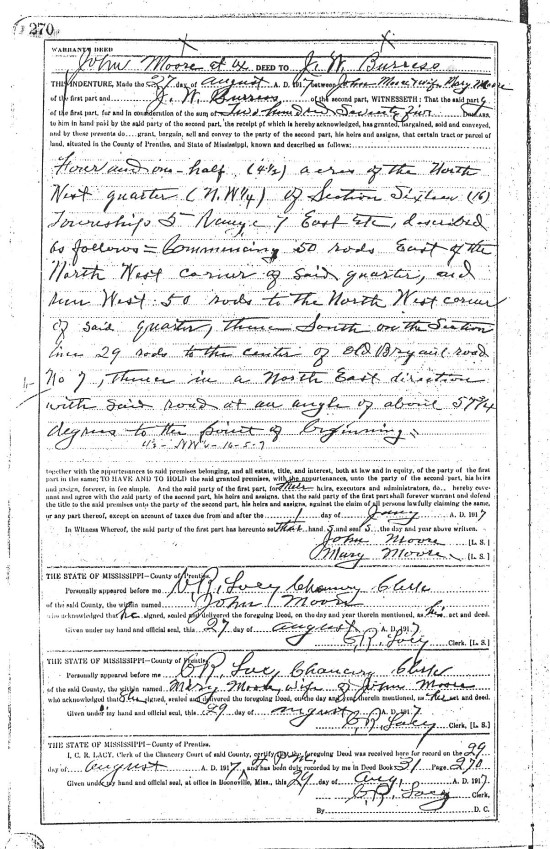 270
WARRANTY DEED
John Moore et ux DEED TO J. W. Burress
THIS INDENTURE, Made the 27 day of August A. D. 1917 between John Moore & wife Mary Moore
of the first part and J. W. Burress of the second part, WITNESSETH: That the said party
of the first part, for and in consideration of the sum of Two hundred Seventy Five DOLLARS,
to him in hand paid by the said party of the second part, the receipt of which is hereby acknowledged, has granted, bargained, sold and conveyed,
and by these presents do grant, bargain, sell and convey to the party of the second part, his heirs and assigns, that certain tract or parcel of
land, situated in the County of Prentiss, and State of Mississippi, known and described as follows:
Four and one-half (4½) acres of the North
West quarter (N.W¼) of Section Sixteen (16)
Township 5 Range 7 East Etc, described
as follows = Commencing 50 rods East of the
North West corner of said quarter, and
run West 50 rods to the North West corner
of said quarter, thence South on the Section
line 29 rods to the center of old Bryant road
No 7, thence in a North East direction
with said road at an angle of about 57¾
degrees to the point of beginning.
16-5-7
together with the appurtenances to said premises belonging, and all estate, title, and interest, both at law and in equity, of the party of the first
part in the same; TO HAVE AND TO HOLD the said granted premises, with the appurtenances, unto the party of the second part, his heirs
and assigns, forever, in fee simple. And the said party of the first part, for their heirs, executors and administrators, do hereby cove-
nant and agree with the said party of the second part, his heirs and assigns, that the said party of the first part shall forever warrant and defend
the title to the said premises unto the party of the second part, his heirs and assigns, against the claim of all persons lawfully claiming the same,
or any part thereof, except on account of taxes due from and after the 1 day of Jany A. D. 1917
In Witness Whereof, the said party of the first part has hereunto set their hand s and seal s, the day and year above written.
John Moore [L. S.]
Mary Moore [L. S.]
THE STATE OF MISSISSIPPI—County of Prentiss.
Personally appeared before me C. R. Lacy Chancery Clerk
of the said County, the within named John Moore
who acknowledged that he signed, sealed and delivered the foregoing Deed, on the day and year therein mentioned, as his act and deed.
Given under my hand and official seal, this 27 day of August A. D. 1917
C. R. Lacy Clerk. [L. S.]
THE STATE OF MISSISSIPPI—County of Prentiss.
Personally appeared before me C. R. Lacy Chancery Clerk
of the said County, the within named Mary Moore, wife of John Moore
who acknowledged that she signed, sealed and delivered the foregoing Deed, on the day and year therein mentioned, as her act and deed.
Given under my hand and official seal, this 29 day of August A. D. 1917
C. R. Lacy Clerk, [L. S.]
THE STATE OF MISSISSIPPI—County of Prentiss.
I, C. R. LACY, Clerk of the Chancery Court of said County, certify the foregoing Deed was received here for record on the 29
day of August A. D. 1917, 4 P M and has been duly recorded by me in Deed Book 31 Page 270
Given under my hand and official seal, at office in Booneville, Miss., this 29 day of Aug. A. D. 1917
C. R. Lacy Clerk,
By D. C.